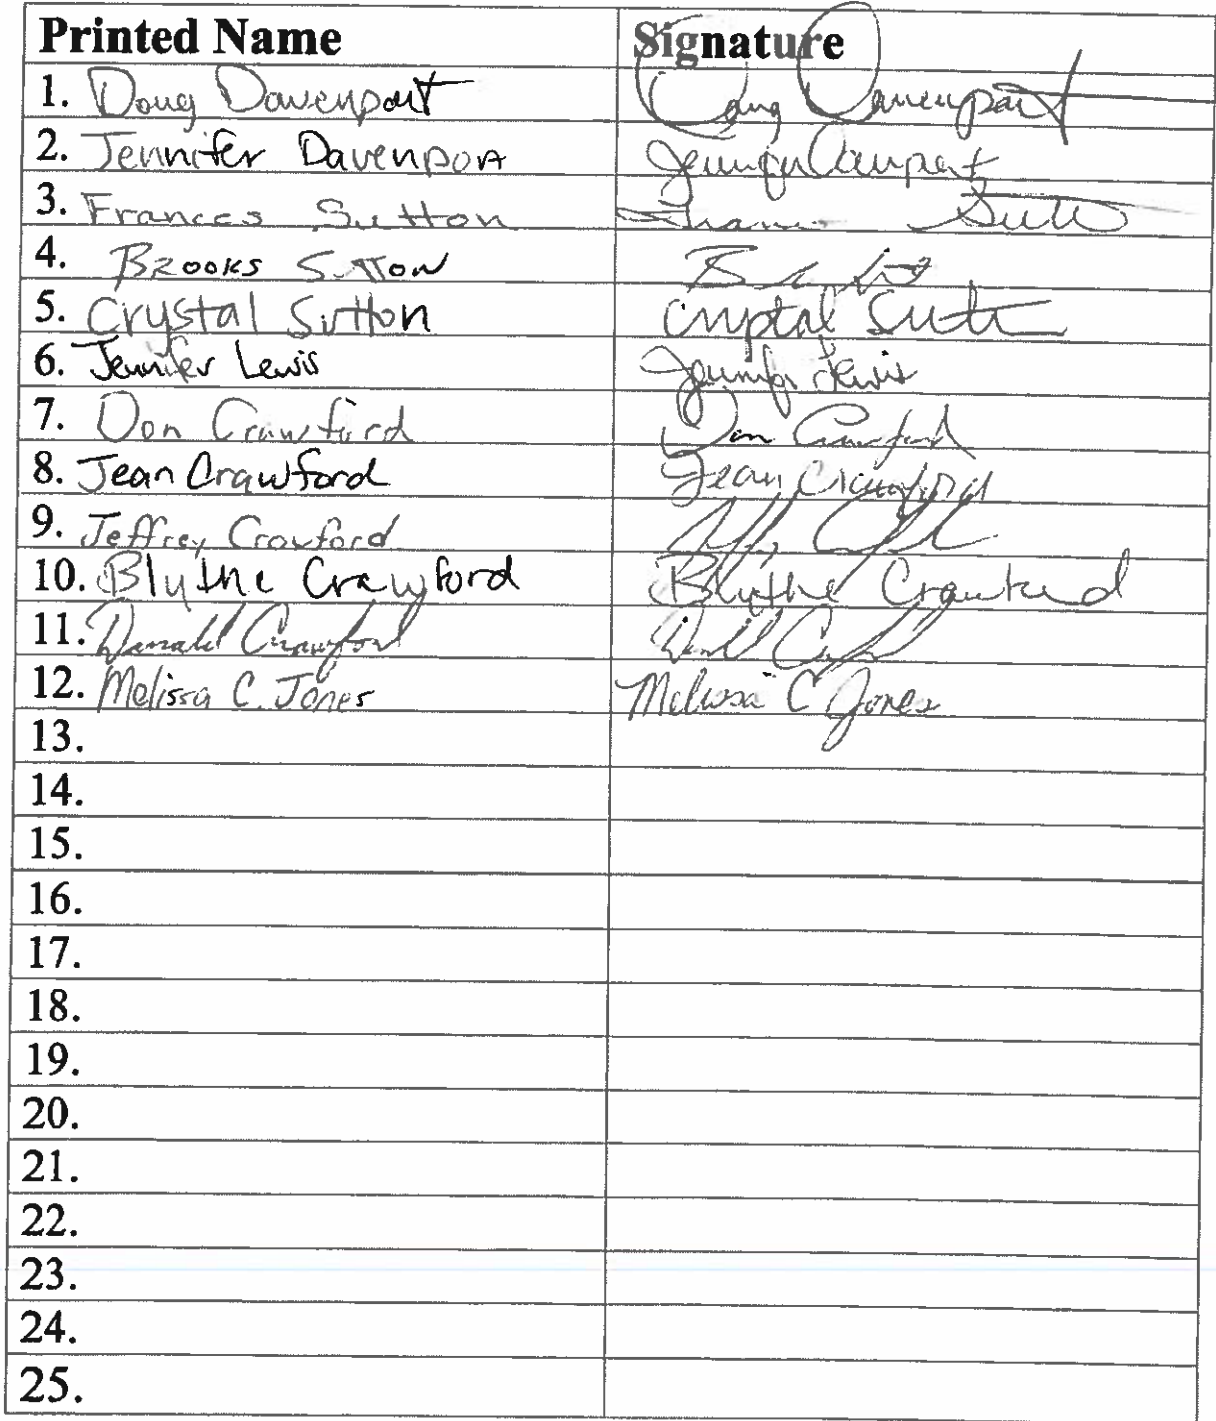 Printed Name Signature
1. Doug Davenport Doug Davenport
2. Jennifer Davenport Jennifer Davenport
3. Frances Sutton Frances Sutton
4. Brooks Sutton
5. Crystal Sutton Crystal Sutton
6. Jennifer Lewis Jennifer Lewis
7. Don Crawford Don Crawford
8. Jean Crawford Jean Crawford
9. Jeffrey Crawford
10. Blythe Crawford Blythe Crawford
11. Donald Crawford
12. Melissa C. Jones Melissa C Jones
13.
14.
15.
16.
17.
18.
19.
20.
21.
22.
23.
24.
25.